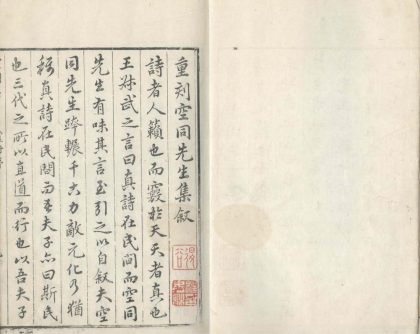 重刻空同先生集叙
詩者人籟也而竅於天天者真也
王叔武之言曰真詩在民間而空同
先生有味其言至引之以自叙夫空
同先生跨輾千古力敵元化乃猶
稱真詩在民間而吾夫子亦曰斯民
也三代之所以直道而行也以吾夫子